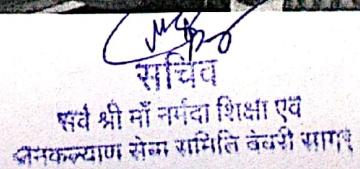 सचिव
सर्व श्री माँ नर्मदा शिक्षा एवं
जनकल्याण सेवा समिति देवरी सागर